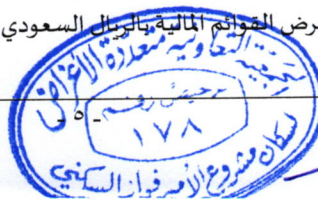 عرض القوائم المالية بالريال السعودي
الجمعية التعاونية متعددة الأغراض
ترخيص رقم
- ٥ -
١٧٨
لسكان مشروع الأمير فواز السكني